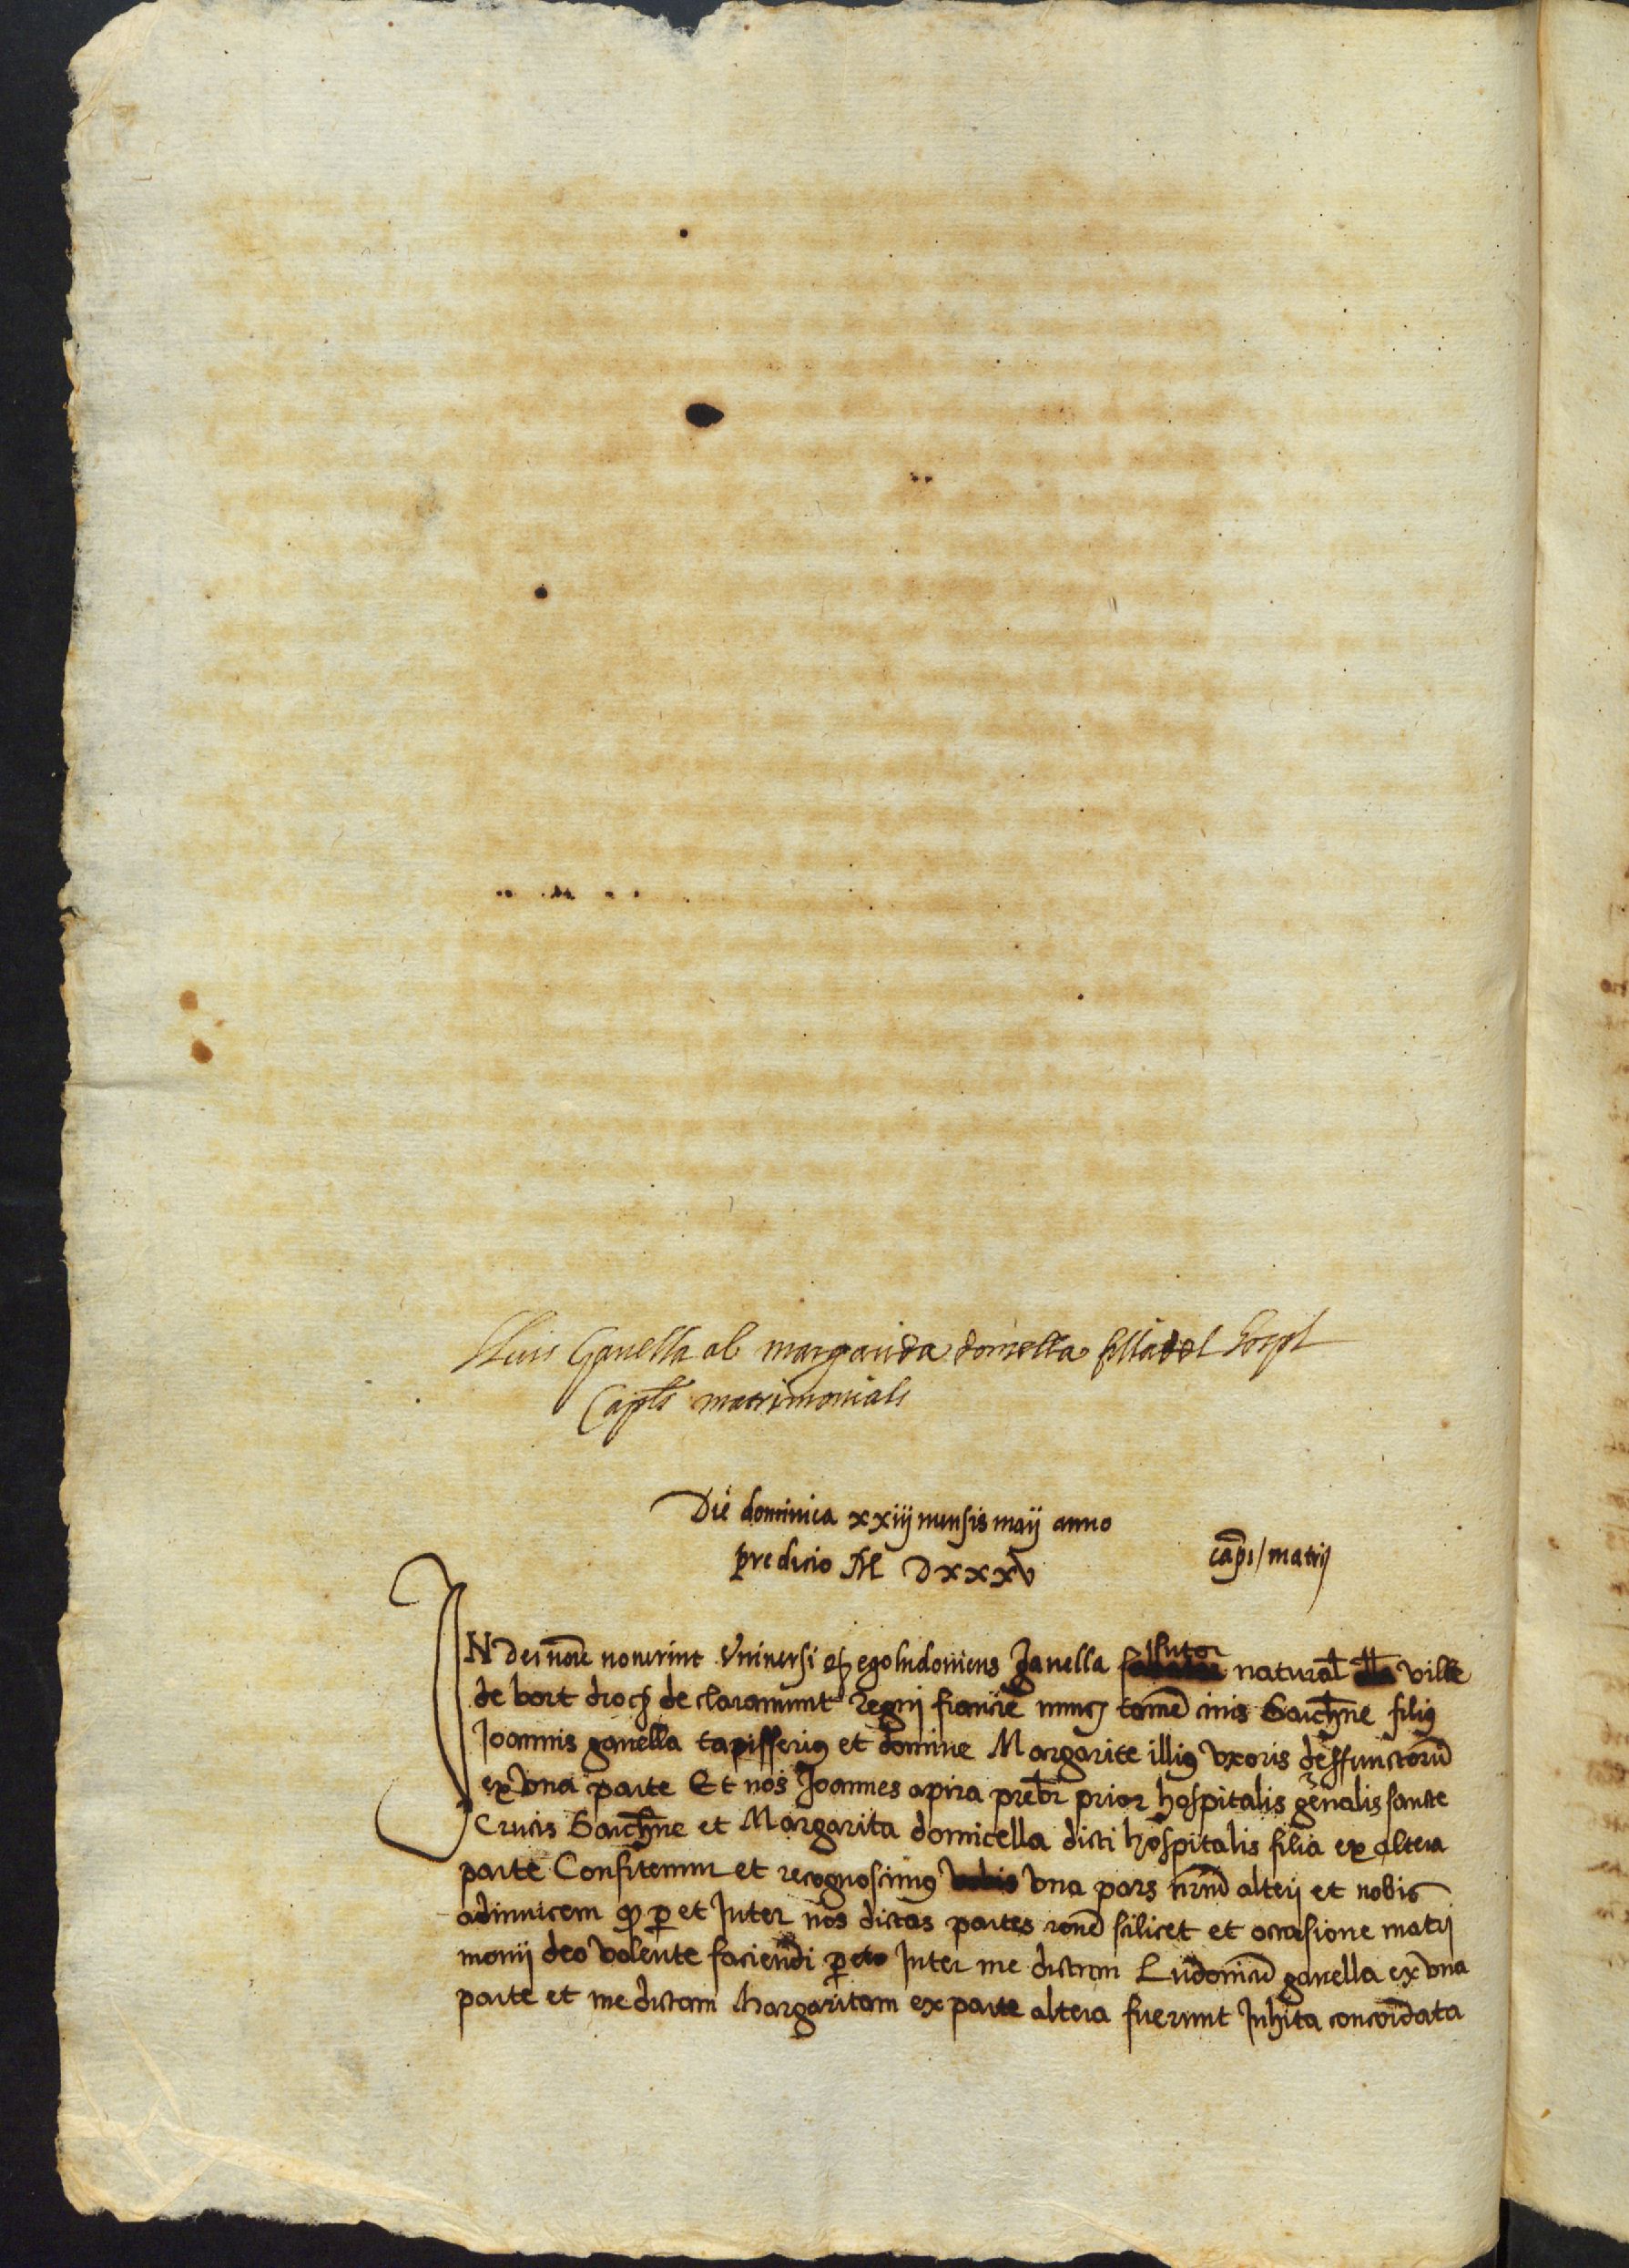 Lluis Ganella ab margarida donsella filla del hospl
Capls matrimonials
Die dominica xxiij mensis maij anno
predicto M D xxxv
capi / matrij
IN Dei noīe noverint Universi q ego ludovicus Ganella sutor natural ville
de bort dioc de claramunt Regni francie nunc tamē civis Barchne filiꝯ
Joannis ganella tapisseriꝯ et domine Margarite illiꝯ Uxoris deffunctorū
ex Una parte Et nos Joannes apira prebr prior hospitalis gēnalis sancte
Crucis Barchne et Margarita domicella dicti hospitalis filia ex altera
parte Confitemur et recognoscimꝯ Una pars nrm̄ alterj et nobis
adinvicem ꝙ ꝑ et Inter nos dictas partes ronē scilicet et occasione matrj
monij deo Volente faciendi Inter me dictum Ludovicū ganella ex Una
parte et me dictam Margaritam ex parte altera fuerunt Inhita concordata